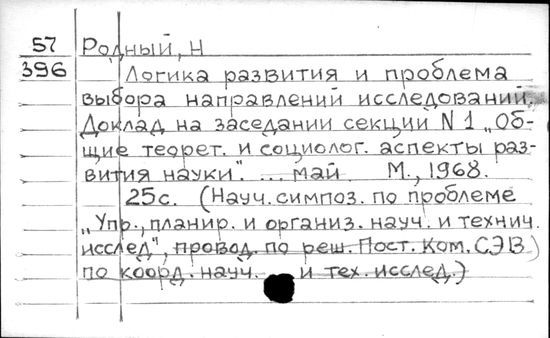 57 Родный, Н
396 Логика развития и проблема
выбора направлений исследований.
Доклад на заседании секции N 1 „Об-
щие теорет. и социолог. аспекты раз-
вития науки". ... май М., 1968.
25с. (Науч. симпоз. по проблеме
„Упр., планир. и организ. науч. и технич.
исслед", провод. по реш. Пост. Ком. СЭВ)
по коорд. науч. и тех. исслед.)